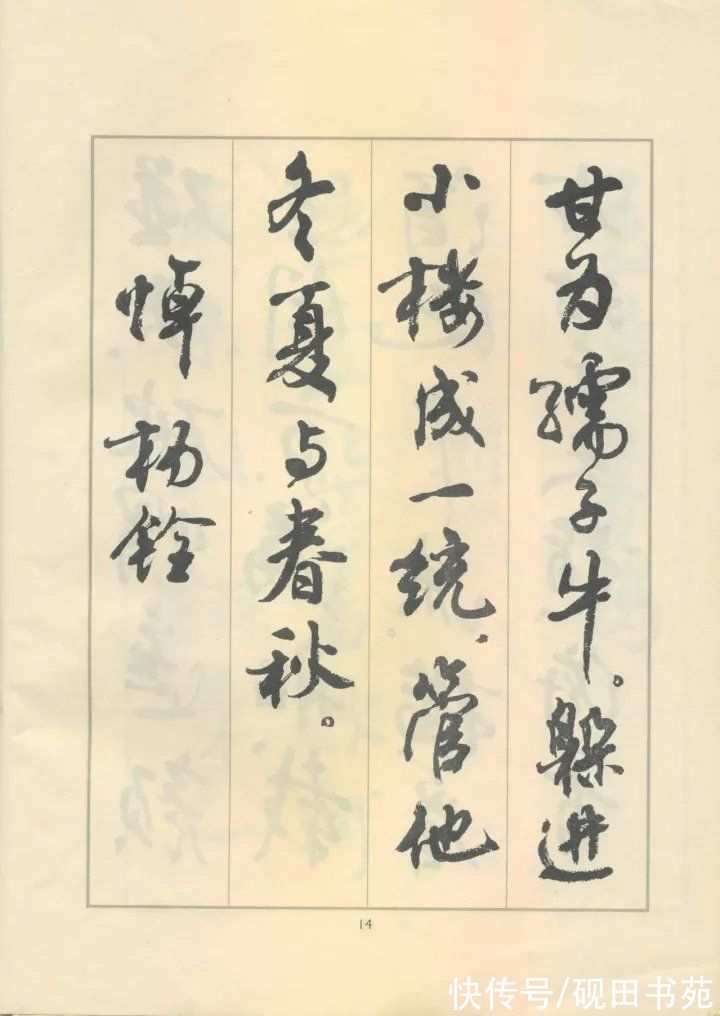 甘为孺子牛。躲进
小楼成一统、管他
冬夏与春秋。
悼杨铨
14
快传号/砚田书苑